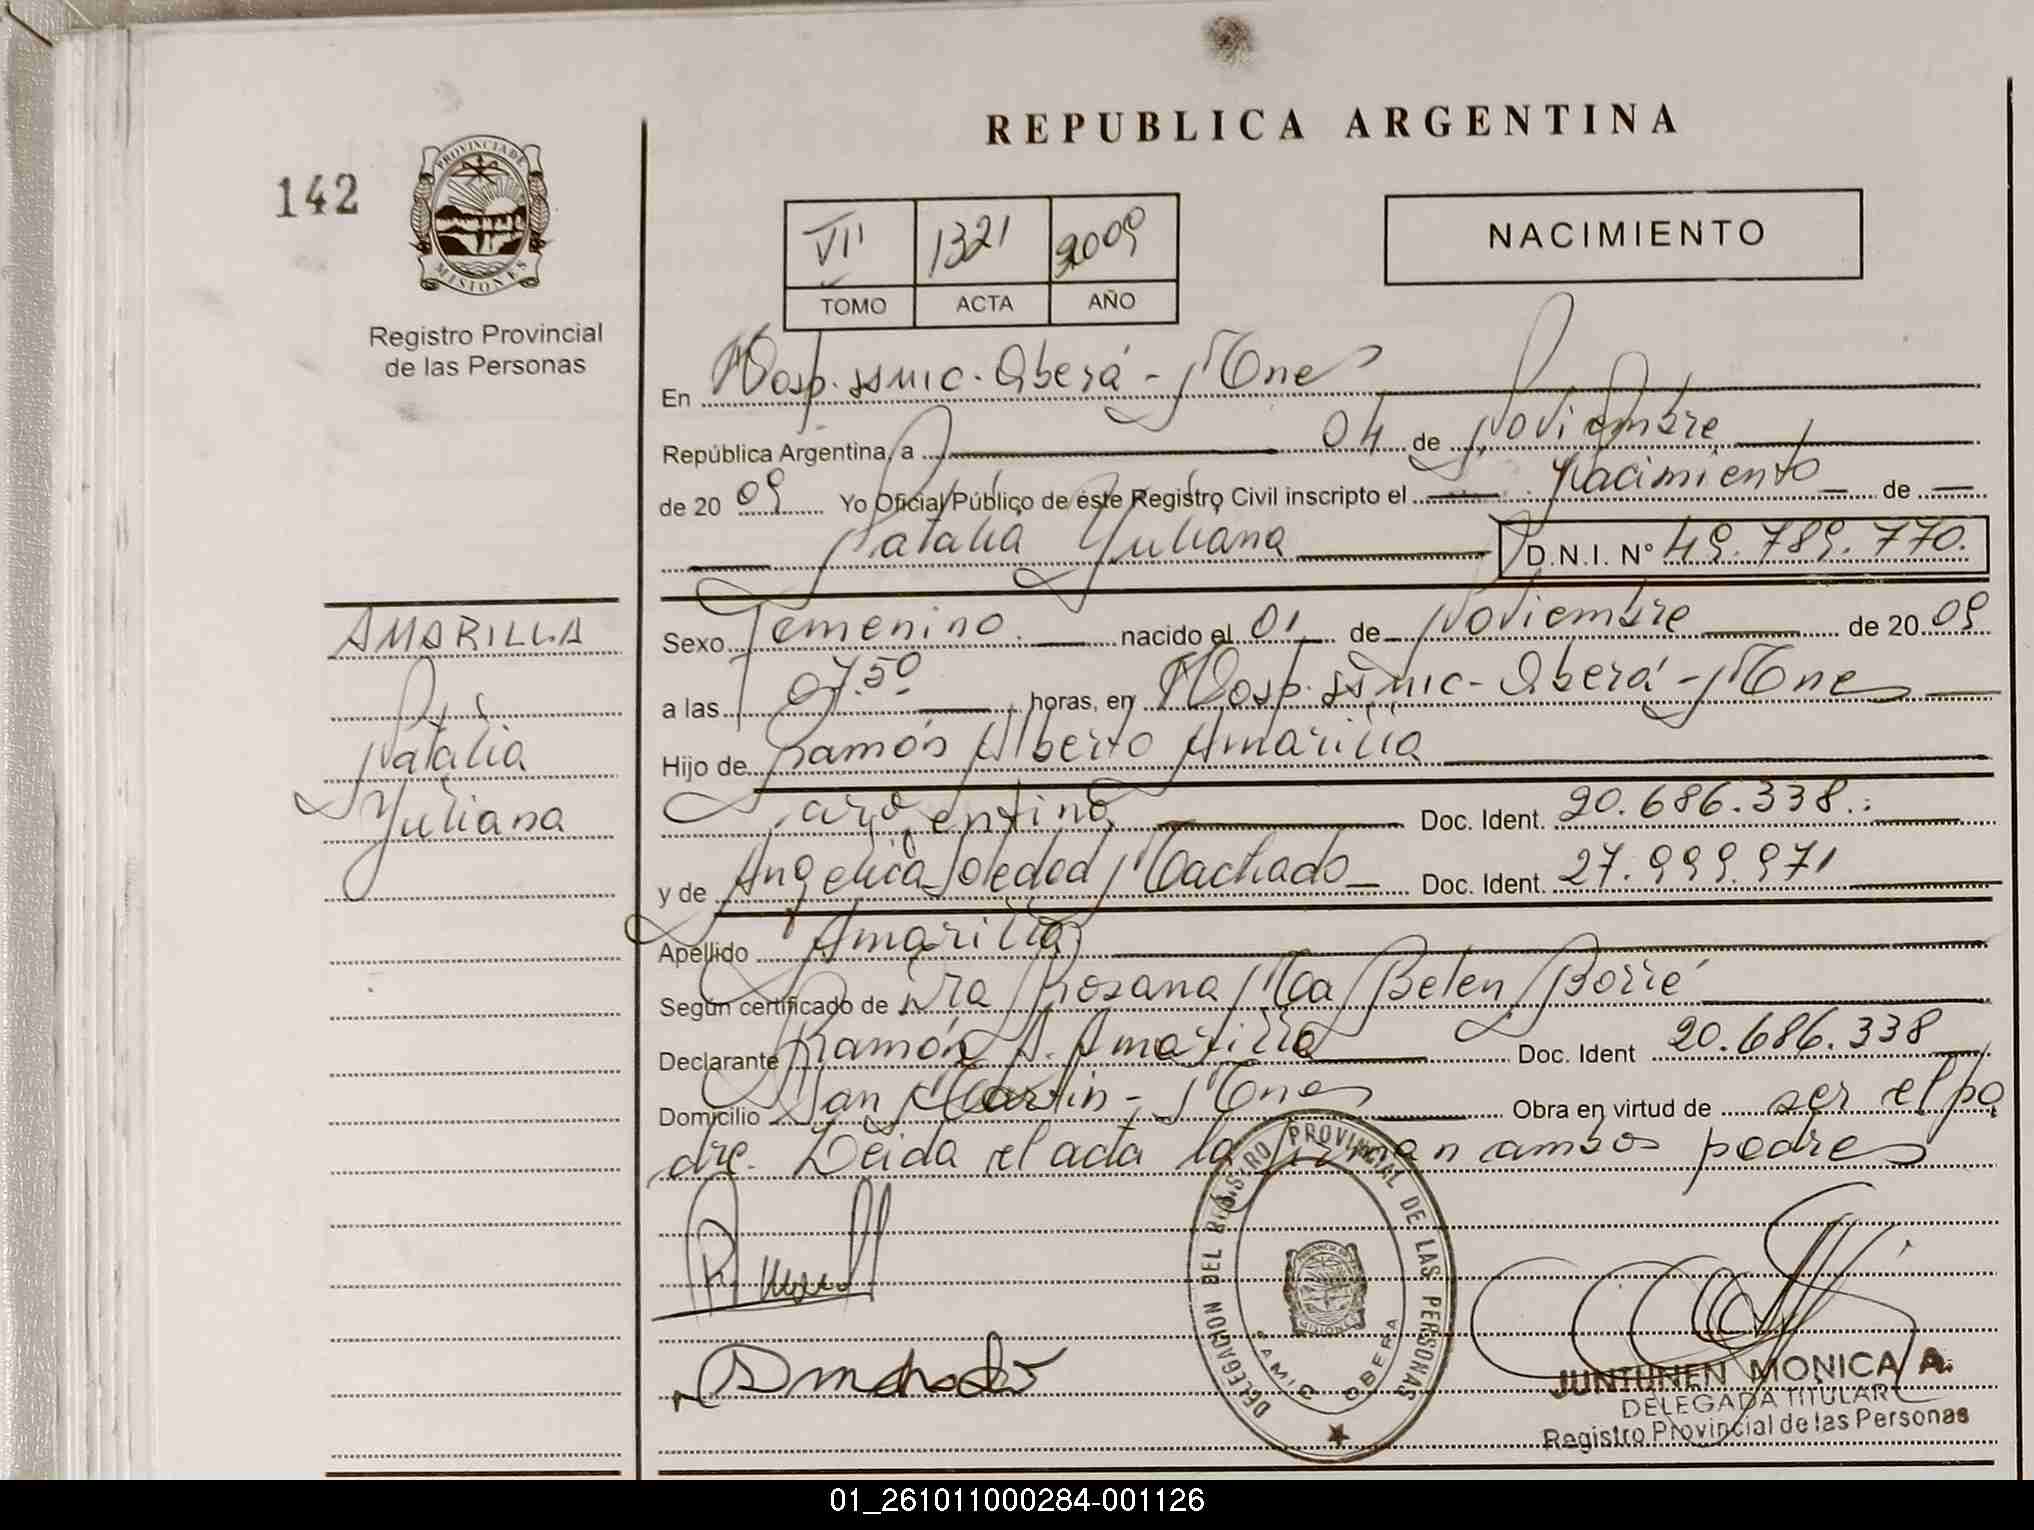 REPUBLICA ARGENTINA
142
PROVINCIA DE
MISIONES
Registro Provincial
de las Personas
VII 1321 2009
TOMO ACTA AÑO
NACIMIENTO
En Hosp. ssmic. Oberá - Mnes
República Argentina, a 04 de Noviembre
de 20 09 Yo Oficial Público de este Registro Civil inscripto el Nacimiento de
Natalia Yuliana D.N.I. Nº 49.789.770.
AMARILLA
Natalia
Yuliana
Sexo Femenino. nacido el 01 de Noviembre de 20 09
a las 07.50 horas, en Hosp. ssmic - Oberá - Mnes
Hijo de Ramón Alberto Amarilla
argentino Doc. Ident. 20.686.338.
y de Angelica Soledad Machado Doc. Ident. 27.999.971
Apellido Amarilla
Según certificado de Dra Rosana Ma Belen Borré
Declarante Ramón A. Amarilla Doc. Ident 20.686.338
Domicilio San Martin - Mnes Obra en virtud de ser el pa
dre. Leida el acta la firman ambos padres
DELEGACION DEL REGISTRO PROVINCIAL DE LAS PERSONAS
SAMIC OBERA
JUNTUNEN MONICA A.
DELEGADA TITULAR
Registro Provincial de las Personas
01_261011000284-001126